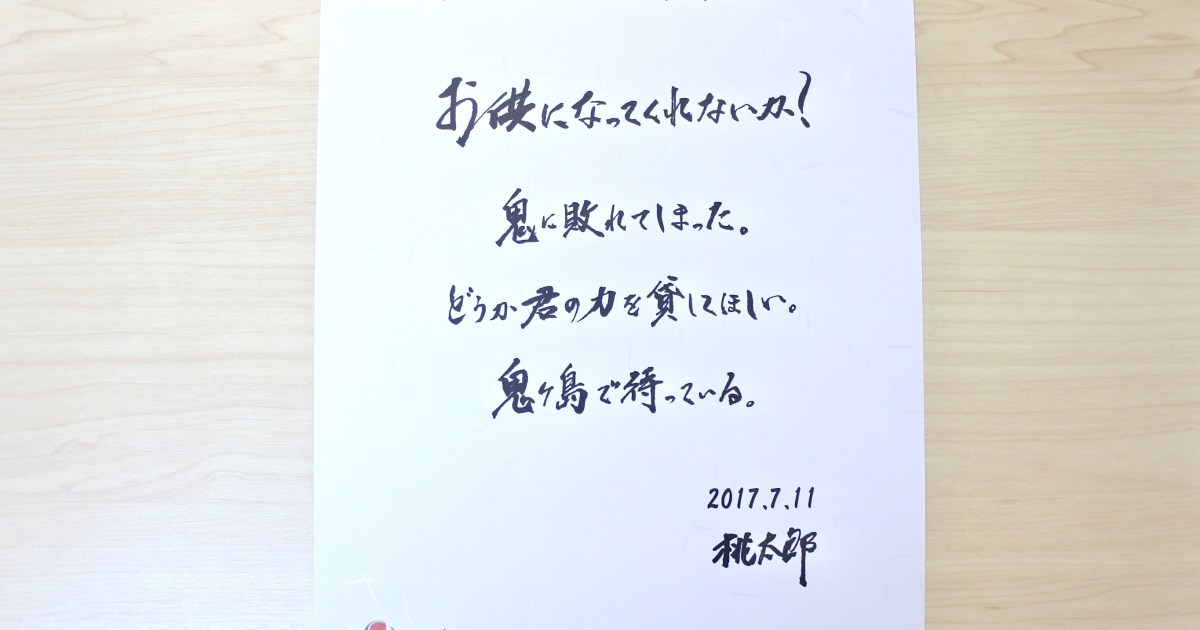 お供になってくれないか?
鬼に敗れてしまった。
どうか君の力を貸してほしい。
鬼ヶ島で待っている。
2017.7.11
桃太郎